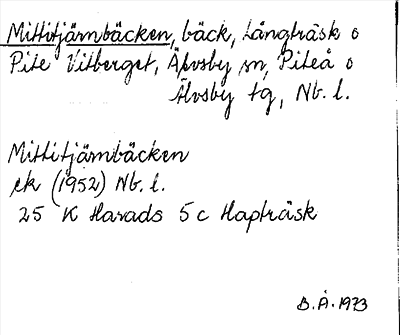 Mittitjärnbäcken, bäck, Långträsk o
Pite Vitberget, Älvsby sn, Piteå o
Älvsby tg, Nb. l.
Mittitjärnbäcken
ek (1952) Nb. l.
25 K Harads 5 c Hapträsk
B.Å. 1973